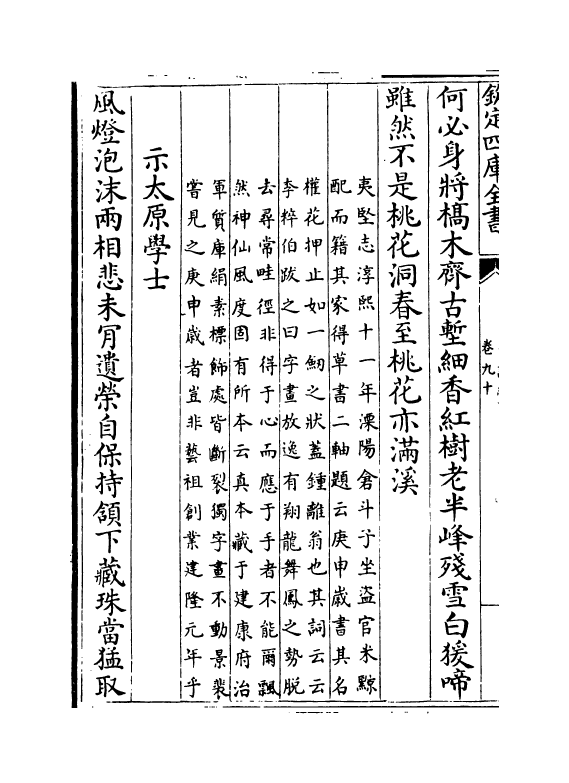 欽定四庫全書
卷九十
何必身將槁木齊古塹細香紅樹老半峰殘雪白猨啼
雖然不是桃花洞春至桃花亦滿溪
夷堅志淳熙十一年溧陽倉斗子坐盜官米黥
配而籍其家得草書二軸題云庚申歲書其名
權花押止如一劒之狀蓋鍾離翁也其詞云云
李粹伯跋之曰字畫放逸有翔龍舞鳳之勢脫
去尋常畦徑非得于心而應于手者不能爾飄
然神仙風度固有所本云真本藏于建康府治
軍資庫絹素標飾處皆斷裂獨字畫不動景裴
嘗見之庚申歲者豈非藝祖創業建隆元年乎
示太原學士
風燈泡沫兩相悲未肎遺榮自保持頷下藏珠當猛取